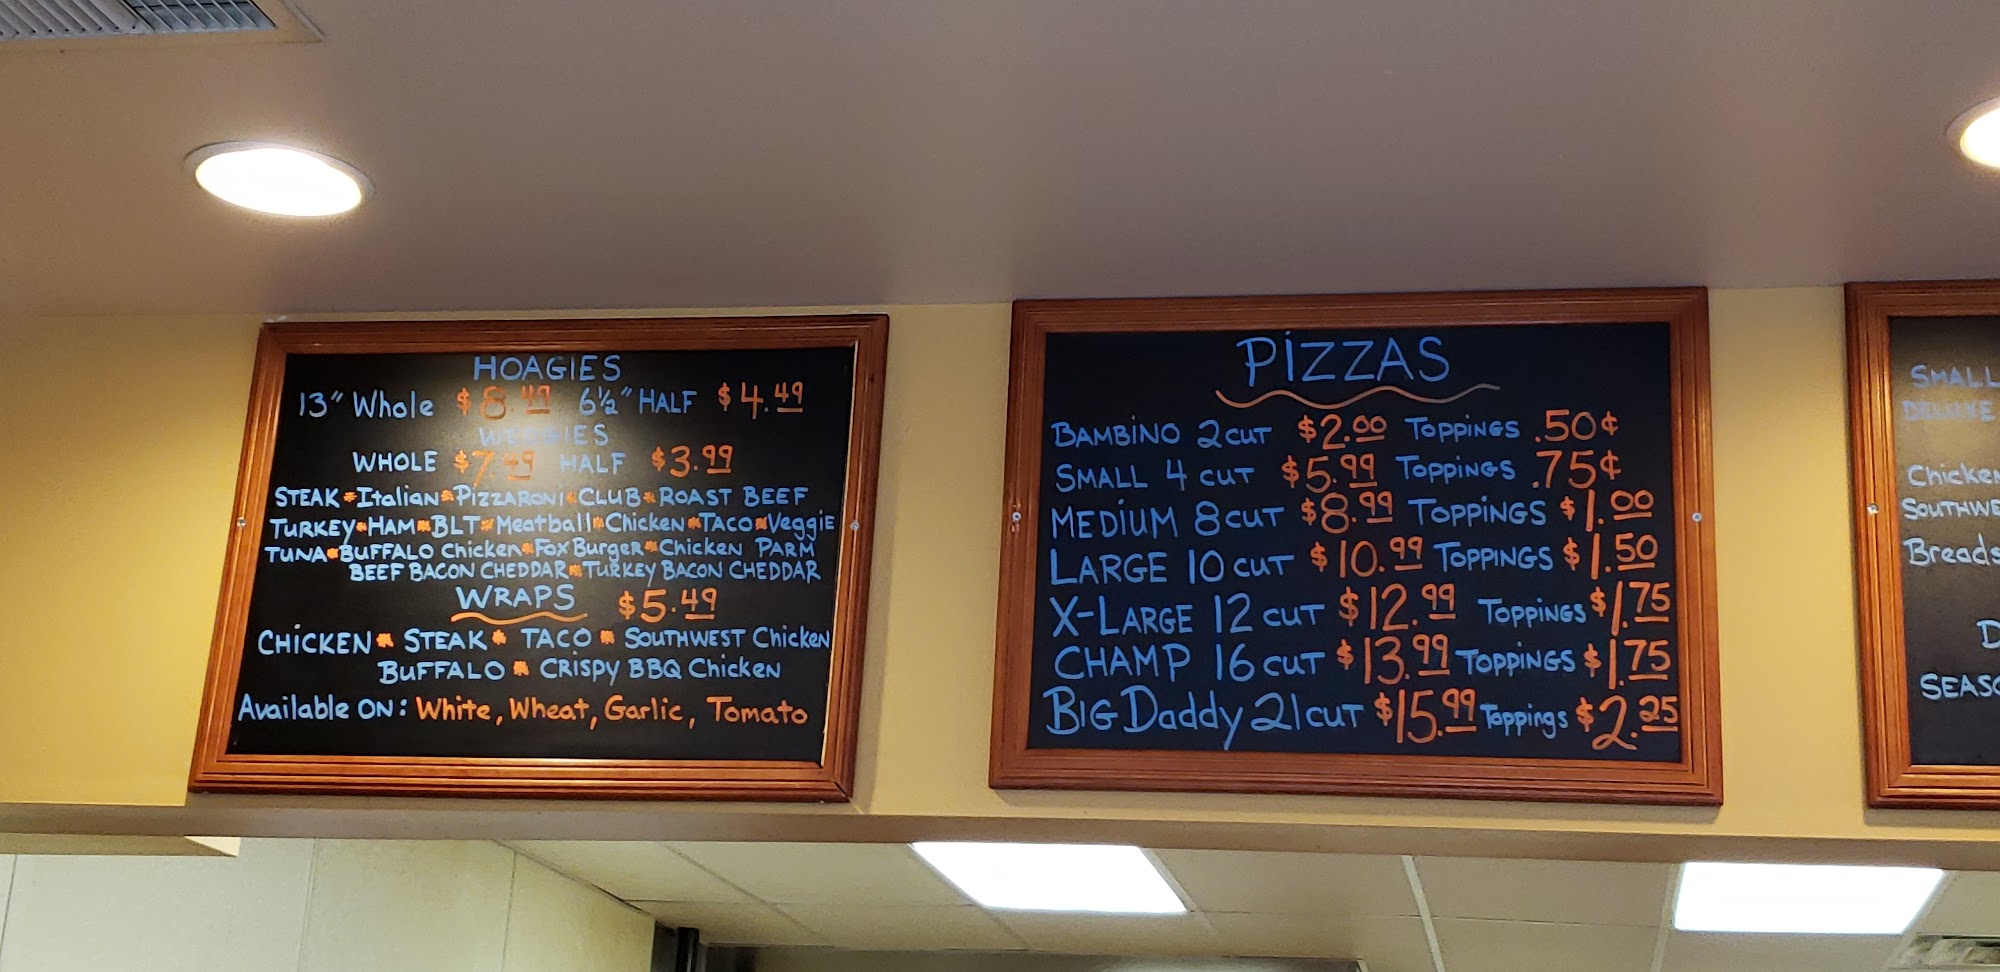 HOAGIES
13" Whole $8.49 6½" HALF $4.49
WEDGIES
WHOLE $7.49 HALF $3.99
STEAK * Italian * PIZZARONI * CLUB * ROAST BEEF
TURKEY * HAM * BLT * Meatball * Chicken * TACO * Veggie
TUNA * BUFFALO Chicken * Fox Burger * Chicken PARM
BEEF BACON CHEDDAR * TURKEY BACON CHEDDAR
WRAPS $5.49
CHICKEN * STEAK * TACO * SOUTHWEST Chicken
BUFFALO * CRISPY BBQ Chicken
Available ON: White, Wheat, Garlic, Tomato
PIZZAS
BAMBINO 2 CUT $2.00 TOPPINGS .50¢
SMALL 4 CUT $5.99 TOPPINGS .75¢
MEDIUM 8 CUT $8.99 TOPPINGS $1.00
LARGE 10 CUT $10.99 TOPPINGS $1.50
X-LARGE 12 CUT $12.99 TOPPINGS $1.75
CHAMP 16 CUT $13.99 TOPPINGS $1.75
BIG Daddy 21 CUT $15.99 Toppings $2.25
SMALL
DELUXE
Chicken
SOUTHWE
Breads
D
SEASO